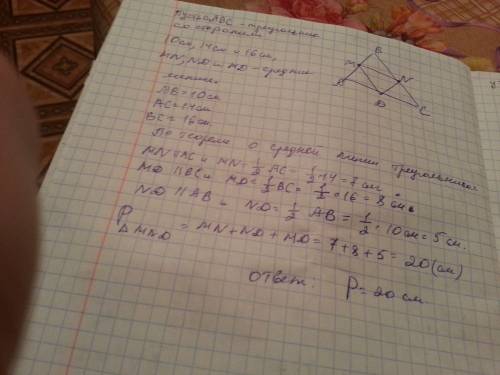 Пусть ABC - треугольник
со сторонами
10см, 14см и 16см,
MN, ND и MD - средние
линии.
AB = 10см
AC = 14см
BC = 16см
По теореме о средней линии треугольника
MN || AC и MN = 1/2 AC = 1/2 · 14 = 7 см
MD || BC и MD = 1/2 BC = 1/2 · 16 = 8 см
ND || AB и ND = 1/2 AB = 1/2 · 10см = 5 см.
P△MND = MN + ND + MD = 7 + 8 + 5 = 20 (см)
Ответ: P = 20 см
B
M
N
D
C